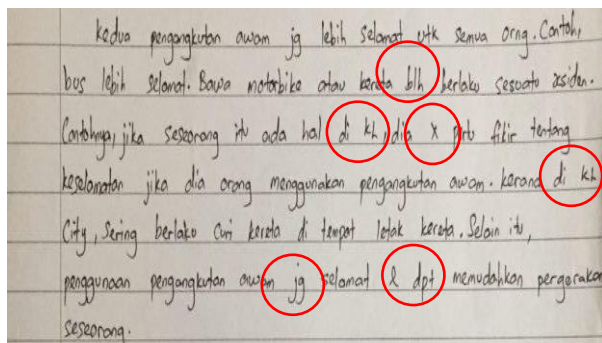 kedua pengangkutan awam jg lebih selamat utk semua orng. Contoh,
bus lebih selamat. Bawa motorbike atau kereta blh berlaku sesuato asiden.
Contohnya, jika seseorang itu ada hal di kh, dia x prtu fikir tentang
keselamatan jika dia orang menggunakan pengangkutan awam. kerana di kh
City, sering berlaku curi kereta di tempat letak kereta. Selain itu,
penggunaan pengangkutan awam jg selamat & dpt memudahkan pergerakan
seseorang.